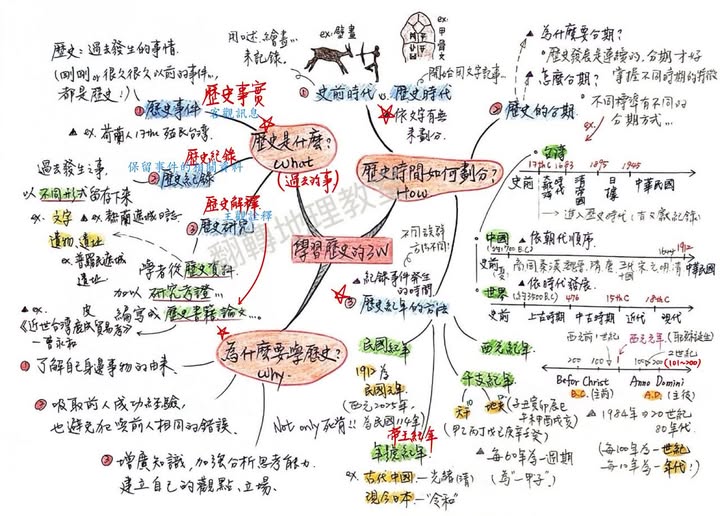 學習歷史的3W
翻轉地理教室
歷史是什麼?
What
(過去的事)
歷史:過去發生的事情.
都是歷史:)
①歷史事件
歷史事實
客觀訊息
▲ ex. 荷蘭人17th殖民台灣.
歷史紀錄
保留事件的相關資料
②歷史紀錄
過去發生之事
以不同形式留存下來
ex. 文字
遺物.遺址
遺址
歷史解釋
主觀詮釋
③歷史研究
學者從歷史資料
加以研究考證…
編寫成歷史書籍論文…
▲ ex.
—曹永和
為什麼要學歷史?
Why
①了解自己身邊事物的由來.
②吸取前人成功經驗,
也避免犯與前人相同的錯誤.
③增廣知識,加強分析思考能力.
建立自己的觀點、立場.
Not only 死背!!
歷史時間如何劃分?
How
用口述.繪畫…
來記錄.
ex. 壁畫
ex. 甲骨文
開始用文字記事.
①史前時代 vs. 歷史時代
依文字有無
來劃分.
②歷史的分期
▲ 為什麼要分期?
▲ 怎麼分期?
掌握不同時期的特徵
不同標準有不同的
分期方式…
ex.
台灣
17thC 1683 1895 1945
史前
日據
中華民國
進入歷史時代(有文獻記錄)
中國
▲ 依朝代順序.
1912
史前
商周秦漢魏晉.隋唐
宋元明清
中華民國
世界
▲ 依時代發展.
(約3500B.C) 476 15thC 18thC
史前 上古時期 中古時期 近代 現代
不同族群
方法不同!
▲ 記錄事件發生
的時間
③歷史紀年的方法
民國紀年
1912為
民國元年
(西元2025年,
為民國114年)
帝王紀年
年號紀年
ex. 古代中國—光緒(清)
現今日本—"令和"
西元紀年
西元前1世紀
西元元年(耶穌誕生)
2世紀
(101~200)
200 100 100 200
Befor Christ
B.C.(主前)
Anno Domini
A.D.(主後)
▲ 1984年→20世紀
80年代.
(每100年為一世紀
每10年為一年代!)
干支紀年
天干 地支
(甲乙丙丁戊己庚辛壬癸)
▲ 每60年為一週期
(為"一甲子")